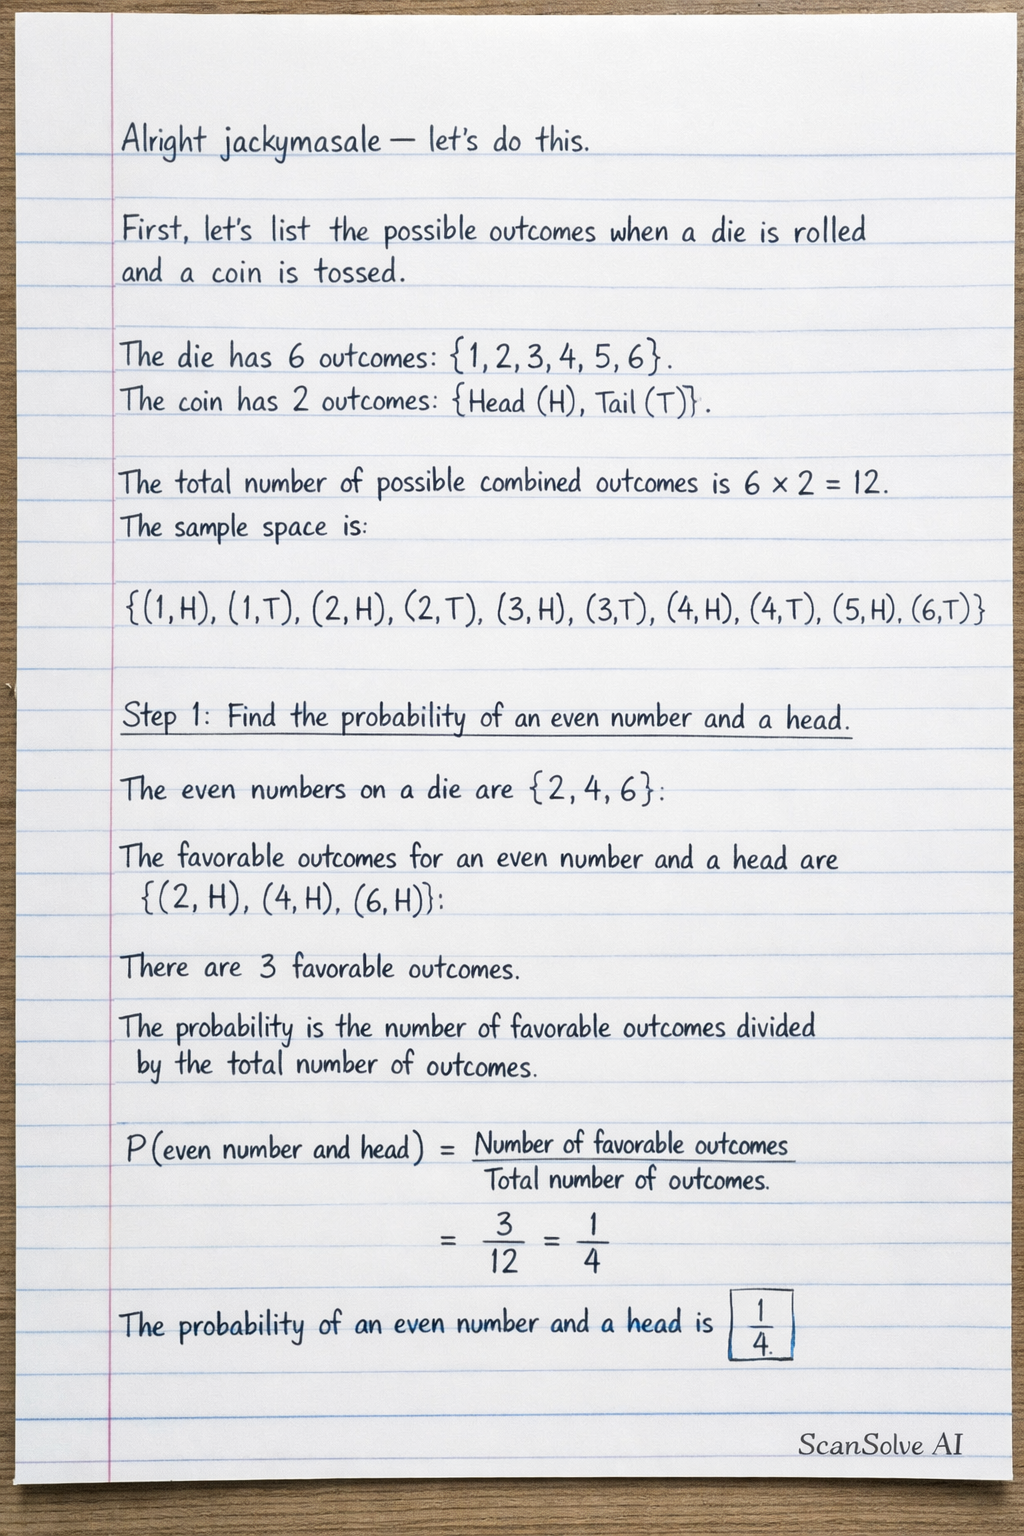 Alright jackymasale — let's do this.
First, let's list the possible outcomes when a die is rolled
and a coin is tossed.
The die has 6 outcomes: {1, 2, 3, 4, 5, 6}.
The coin has 2 outcomes: {Head (H), Tail (T)}.
The total number of possible combined outcomes is 6 × 2 = 12.
The sample space is:
{(1, H), (1, T), (2, H), (2, T), (3, H), (3, T), (4, H), (4, T), (5, H), (6, T)}
Step 1: Find the probability of an even number and a head.
The even numbers on a die are {2, 4, 6}:
The favorable outcomes for an even number and a head are
{(2, H), (4, H), (6, H)}:
There are 3 favorable outcomes.
The probability is the number of favorable outcomes divided
by the total number of outcomes.
P(even number and head) = Number of favorable outcomes
Total number of outcomes.
= 3/12 = 1/4
The probability of an even number and a head is 1/4.
ScanSolve AI